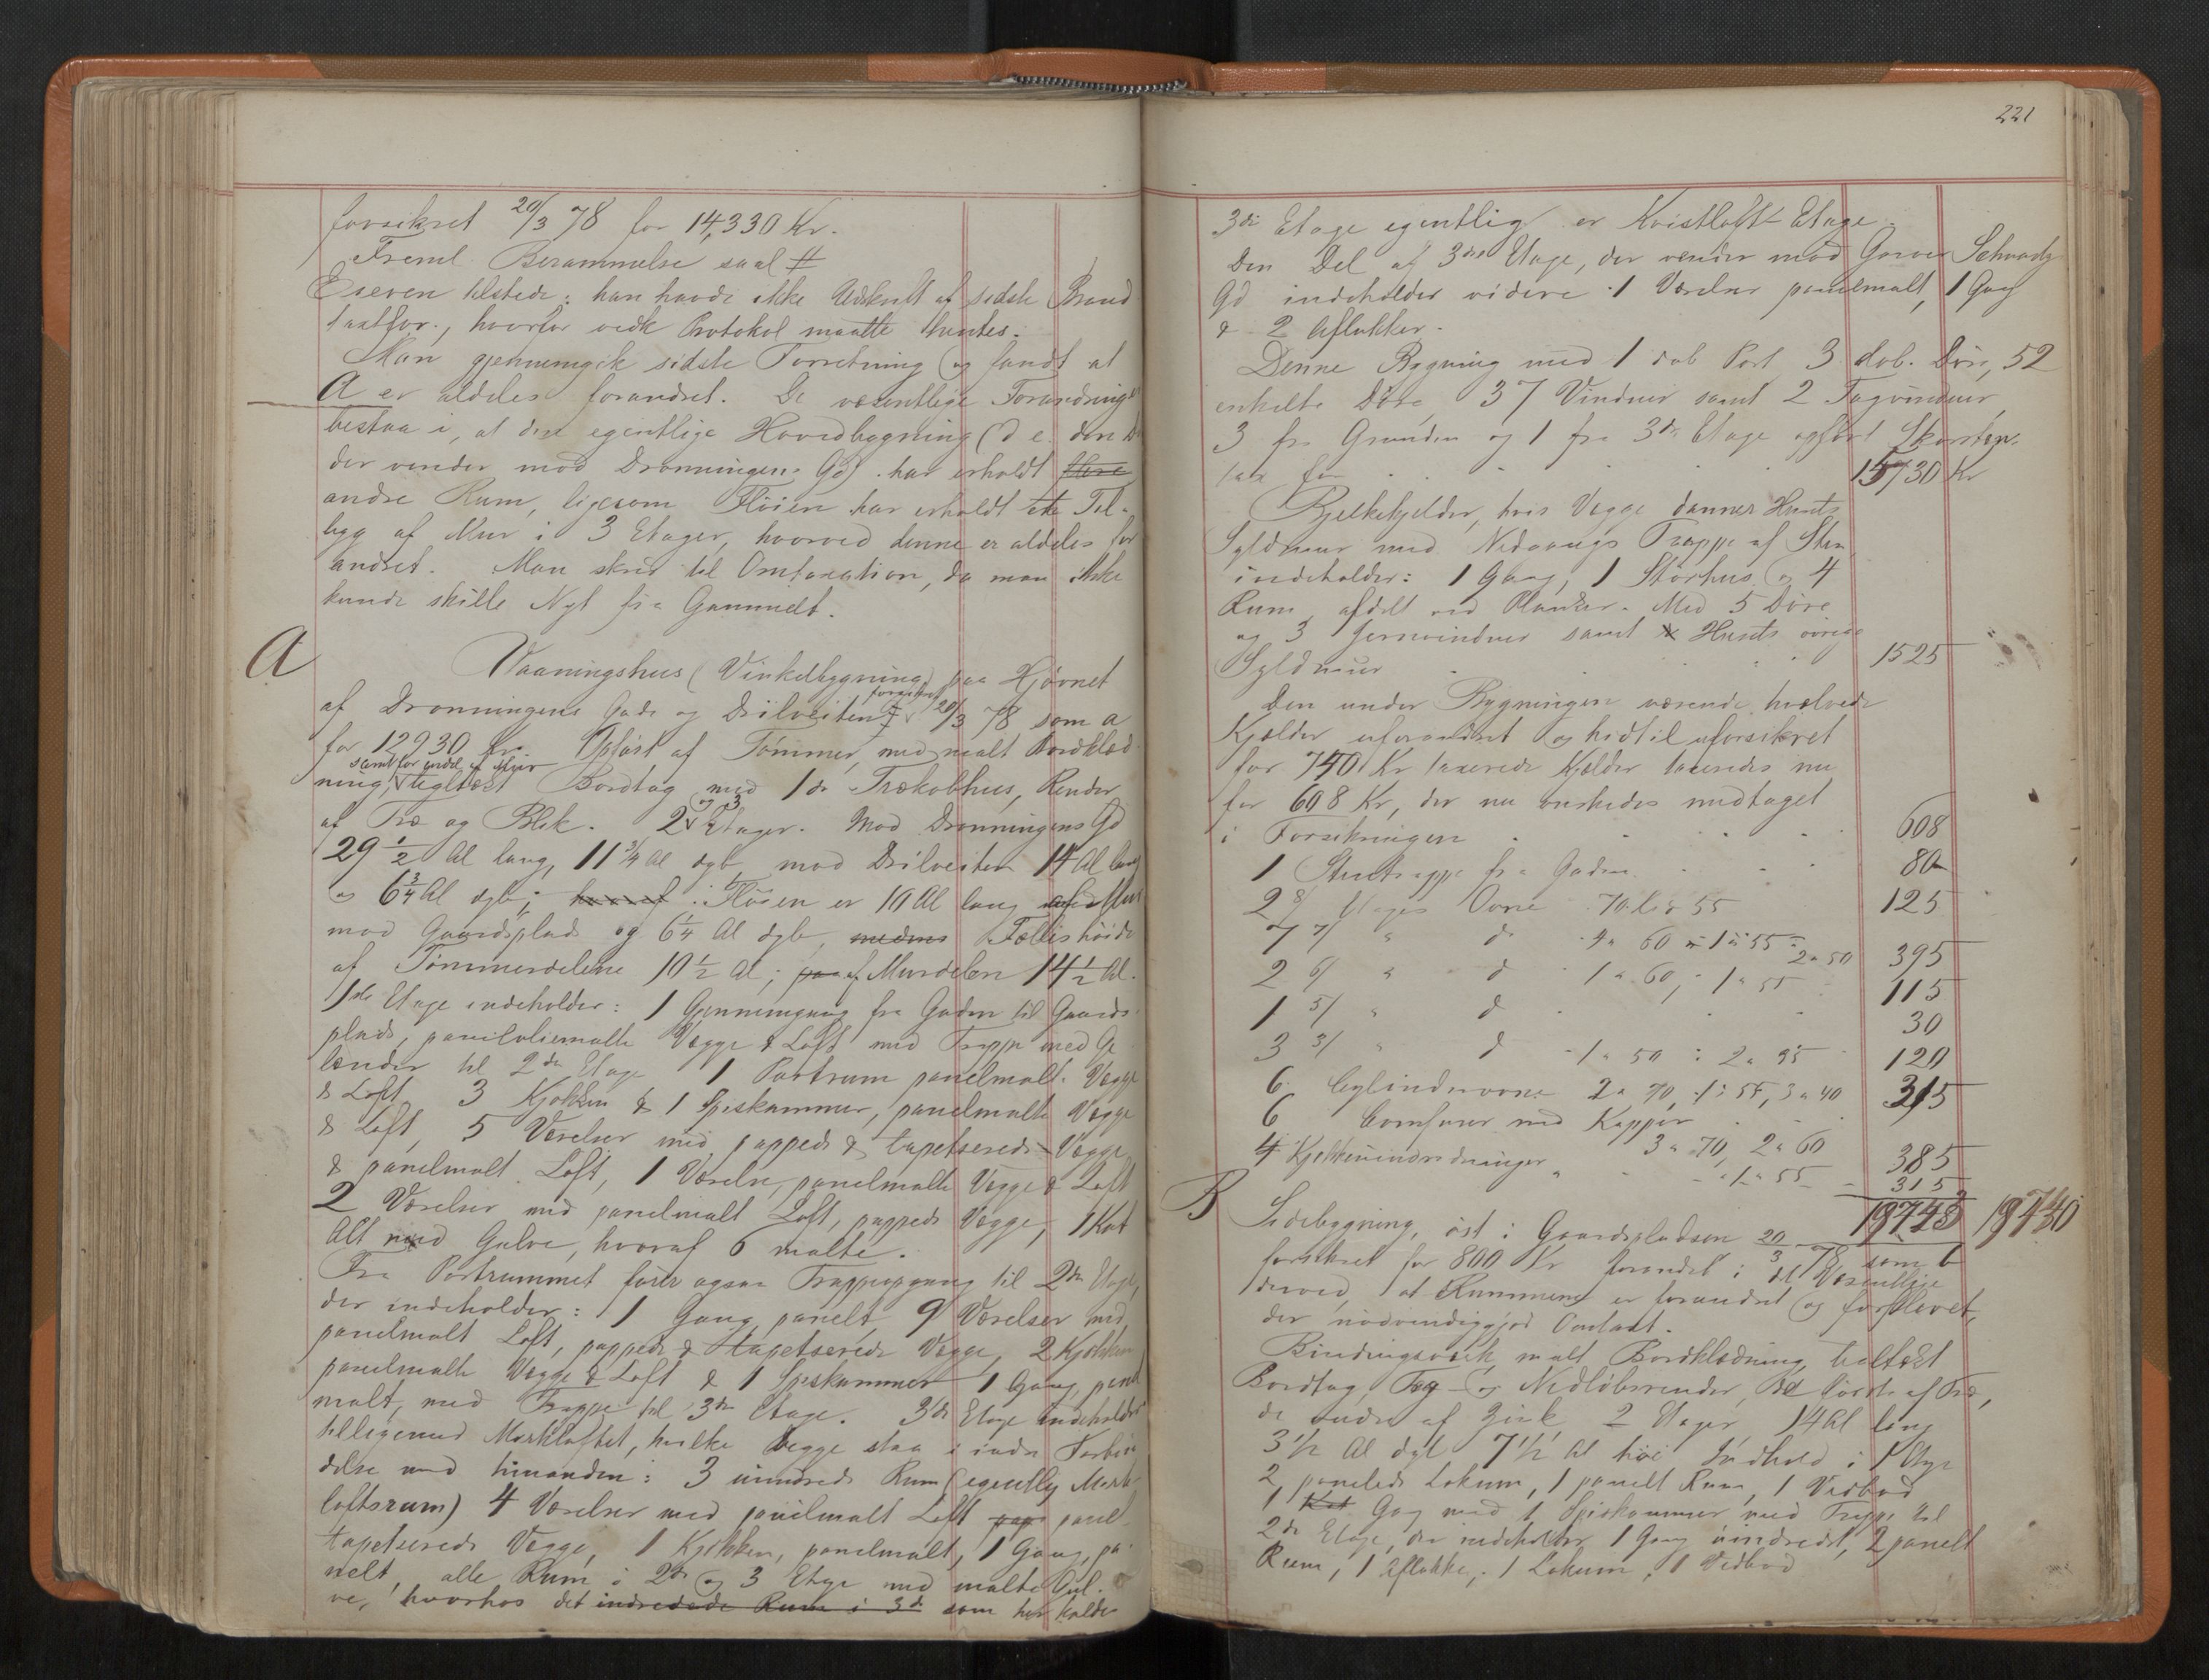 forsikret 20/3 78 for 14,330 Kr.
Freml. Berammelse saal #
Eieren tilstede; han havde ikke Udskrift af sidste Brand
taxtfor., hvorfor vedk Protokol maatte hentes.
Man gjennemgik sidste Forretning og fandt at
A er aldeles forandret. De væsentlige Forandringer
bestaa i, at den egentlige Hovedbygning (d e. den D
der vender mod Dronningens Gd) har erholdt flere
andre Rum, ligesom Fløien har erholdt ete Til-
byg af Mur i 3 Etager, hvorved denne er aldeles for
andret. Man skred til Omtaxation, da man ikke
kunde skille Nyt fra Gammelt.
A
Vaaningshus (Vinkelbygning) paa Hjørnet
af Dronningens Gade og Drilveiten, forsikret 20/3 78 som a
for 12930 Kr. Opført af Tømmer, med malt Bordklæd
samt for endel af Muur
ning, tegltækt Bordtag med 1 dr Trækobhus, Render
af Træ og Blik. 2 og 3 Etager. Mod Dronningens Gd
29 1/2 Al lang, 11 3/4 Al dyb mod Drilveiten 14 Al lang
og 6 3/4 Al dyb; hvoraf Fløien er 10 Al lang af Mur
mod Gaardsplads og 6 1/4 Al dyb, medens Fælleshøide
af Tømmerdelene 10 1/2 Al; paa af Murdelen 14 1/2 Al.
1ste Etage indeholder: 1 Gjennemgang fra Gaden til Gaards
plads, paneloliemalte Vægge & Loft med Trappe med Ge
lænder til 2den Etage 1 Portrum panelmalt Vægge
& Loft, 3 Kjøkken & 1 Spiskammer, panelmalte Vægge
& Loft, 5 Værelser med pappede & tapetserede Vægge
& panelmalt Loft, 1 Værelse, panelmalte Vægge & Loft
2 Værelser med panelmalt Loft, pappede Vægge, 1 Kot
Alt med Gulve, hvoraf 6 malte.
Fra Portrummet fører ogsaa Trappeopgang til 2den Etage,
der indeholder: 1 Gang panelt, 9 Værelser med
panelmalt Loft, pappede & tapetserede Vægge, 2 Kjøkken
panelmalte Vægge & Loft & 1 Spiskammer 1 Gang, panel
malt, med Trappe til 3die Etage. 3die Etage indeholder
tilligemed Mørkloftet, hvilke begge staa i indre Forbin
delse med hinanden: 3 uindrede Rum (egentlig Mørk
loftsrum) 4 Værelser med panelmalt Loft pap panel
tapetserede Vægge, 1 Kjøkken, panelmalt, 1 Gang, pa
nelt, alle Rum i 2den og 3 Etage med malte Gul-
ve, hvorhos det indredede Rum i 3die som her kaldes
221
3die Etage egentlig er Kvistloft Etage.
Den Del af 3die Etage, der vender mod Garver Schwartz
Gd indeholder videre 1 Værelse panelmalt, 1 Gang
& 2 Aflukker.
Denne Bygning med 1 dob Port 3 dob. Døre, 52
enkelte Døre 37 Vinduer samt 2 Tagvinduer,
3 fra Grunden og 1 fra 3die Etage opført Skorsten
taxt for 15730 Kr
Bjelkekjelder, hvis Vægge danner Husets
Syldmur med Nedgangs Trappe af Sten
indeholder: 1 Gang, 1 Størhus og 4
Rum, afdelt ved Planker. Med 5 Døre
og 3 Jernvinduer samt Husets øvrige
Syldmur 1525
Den under Bygningen værende hvælvede
Kjælder uforandret og hidtil uforsikret
for 740 Kr taxerede Kjælder taxeredes nu
for 608 Kr, der nu ønskedes medtaget
i Forsikringen 608
1 Stentrappe fra Gaden 80
2 8/ Etages Ovne 70 & 55 125
7 7/ " d 4 a 60 1 a 55 2 a 50 395
2 6/ " d 1 a 60, 1 a 55 115
1 5/ " d 30
3 3/ " d 1 a 50 2 a 35 120
6 Cylinderovne 2 a 70, 1 a 55, 3 a 40 315
6 Comfurer med Kapper
3 a 70, 2 a 60
1 a 55 385
4 Kjøkkenindredninger " 315
19743 19740
B
Sidebygning, øst i Gaardspladsen 20/3 78 som b
forsikret for 800 Kr forandret i det Væsentlige
derved, at Rummene er forandret og forfløvet,
der nødvendiggjør Omtaxt.
Bindingsværk malt Bordklædning, teltækt
Bordtag, Tag- og Nedløbsrender, første af Træ,
de andre af Zink 2 Etager, 14 Al lang
3 1/2 Al dyb 7 1/2 Al høi Indhold i 1 Etage
2 panelede Lokum, 1 panelt Rum, 1 Vedbod
1 Kot Gang med 1 Spiskammer med Trappe til
2den Etage, der indeholder 1 Gang uindredet, 2 panelt
Rum, 1 Aflukke, 1 Lokum, 1 Vedbod